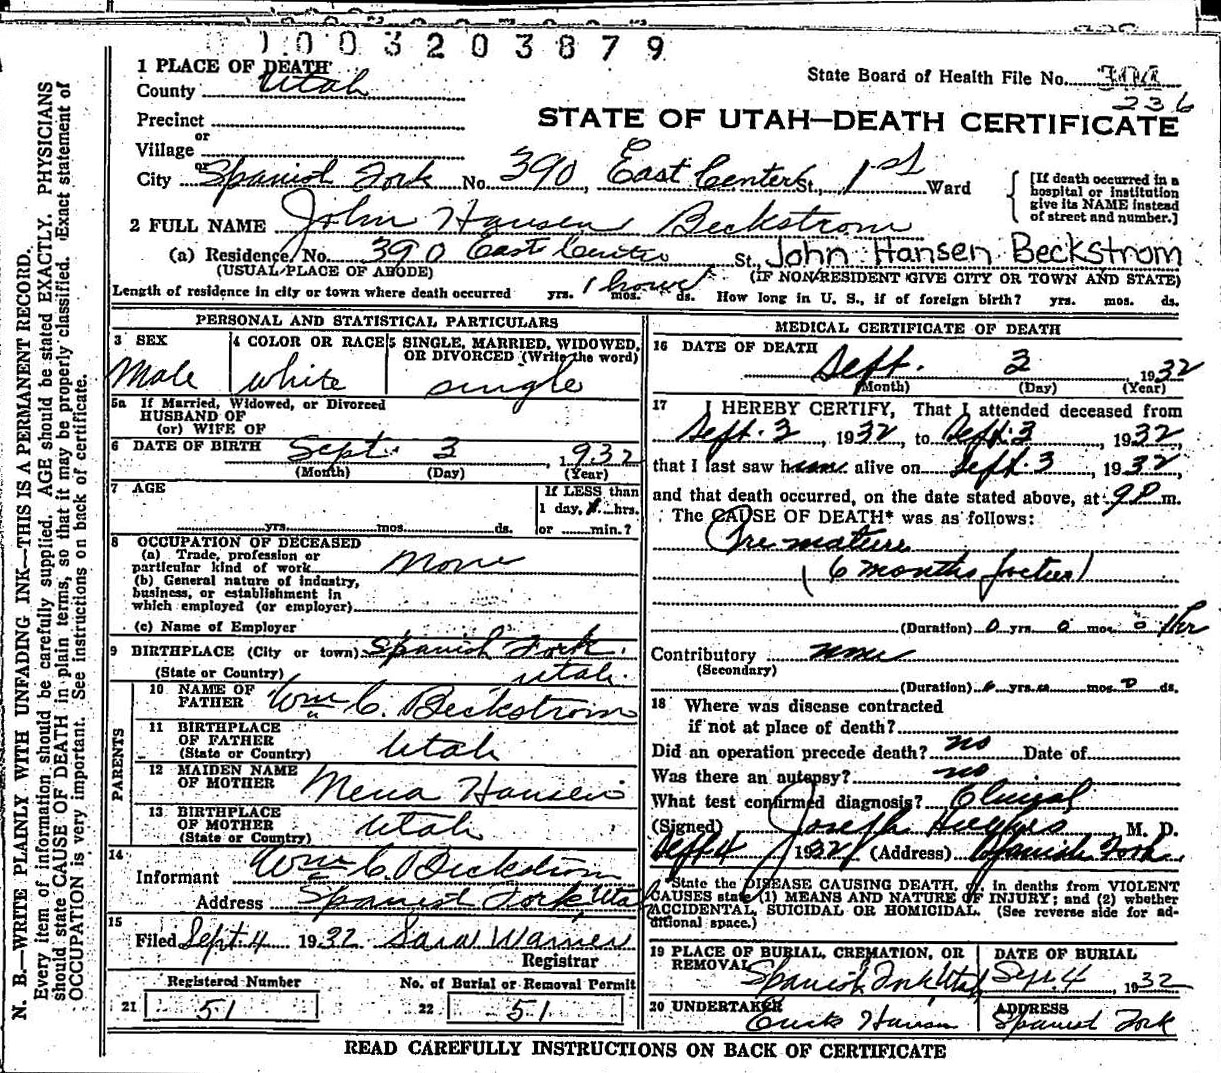 1003203879
1 PLACE OF DEATH
County Utah
State Board of Health File No.
236
Precinct
or
Village
or
City Spanish Fork No. 390, East Center St., 1st Ward
STATE OF UTAH—DEATH CERTIFICATE
[If death occurred in a
hospital or institution
give its NAME instead
of street and number.]
2 FULL NAME John Hansen Beckstrom
(a) Residence, No. 390 East Center St., John Hansen Beckstrom
(USUAL PLACE OF ABODE) (IF NON-RESIDENT GIVE CITY OR TOWN AND STATE)
Length of residence in city or town where death occurred yrs. 1 hour mos. ds. How long in U. S., if of foreign birth? yrs. mos. ds.
PERSONAL AND STATISTICAL PARTICULARS
3 SEX
Male
4 COLOR OR RACE
white
5 SINGLE, MARRIED, WIDOWED,
OR DIVORCED (Write the word)
single
5a If Married, Widowed, or Divorced
HUSBAND OF
(or) WIFE OF
6 DATE OF BIRTH Sept. 3, 1932
(Month) (Day) (Year)
7 AGE
yrs. mos. ds.
If LESS than
1 day, hrs.
or min.?
8 OCCUPATION OF DECEASED
(a) Trade, profession or
particular kind of work None
(b) General nature of industry,
business, or establishment in
which employed (or employer)
(c) Name of Employer
9 BIRTHPLACE (City or town) Spanish Fork.
(State or Country) Utah.
PARENTS
10 NAME OF
FATHER Wm C. Beckstrom
11 BIRTHPLACE
OF FATHER
(State or Country) Utah
12 MAIDEN NAME
OF MOTHER Mena Hansen
13 BIRTHPLACE
OF MOTHER
(State or Country) Utah
14
Informant Wm C. Beckstrom
Address Spanish Fork, Utah
15
Filed Sept 4 1932 Sara Warner
Registrar
Registered Number
21 51
No. of Burial or Removal Permit
22 51
MEDICAL CERTIFICATE OF DEATH
16 DATE OF DEATH
Sept. 3 1932
(Month) (Day) (Year)
17 I HEREBY CERTIFY, That I attended deceased from
Sept. 3, 1932, to Sept. 3, 1932,
that I last saw h alive on Sept. 3, 1932,
and that death occurred, on the date stated above, at 9 P m.
The CAUSE OF DEATH* was as follows:
Premature
(6 months foetus)
(Duration) 0 yrs. 0 mos. 0 1 hr
Contributory none
(Secondary)
(Duration) yrs. mos. 0 ds.
18 Where was disease contracted
if not at place of death?
Did an operation precede death? no Date of
Was there an autopsy? no
What test confirmed diagnosis? Clinical
(Signed) Joseph Hughes M. D.
Sept 4 1932 (Address) Spanish Fork
*State the DISEASE CAUSING DEATH, or, in deaths from VIOLENT
CAUSES state (1) MEANS AND NATURE OF INJURY; and (2) whether
ACCIDENTAL, SUICIDAL OR HOMICIDAL. (See reverse side for ad-
ditional space.)
19 PLACE OF BURIAL, CREMATION, OR
REMOVAL
Spanish Fork Utah
DATE OF BURIAL
Sept. 4, 1932
20 UNDERTAKER
Hanson
ADDRESS
Spanish Fork
READ CAREFULLY INSTRUCTIONS ON BACK OF CERTIFICATE
N. B.—WRITE PLAINLY WITH UNFADING INK—THIS IS A PERMANENT RECORD.
Every item of information should be carefully supplied. AGE should be stated EXACTLY. PHYSICIANS
should state CAUSE OF DEATH in plain terms, so that it may be properly classified. Exact statement of
OCCUPATION is very important. See instructions on back of certificate.